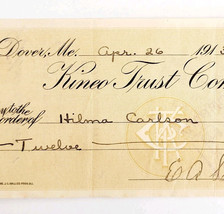 Dover, Me. Apr. 26 191
Kineo Trust Co
y to the
order of Hilma Carlson
Twelve
E A S